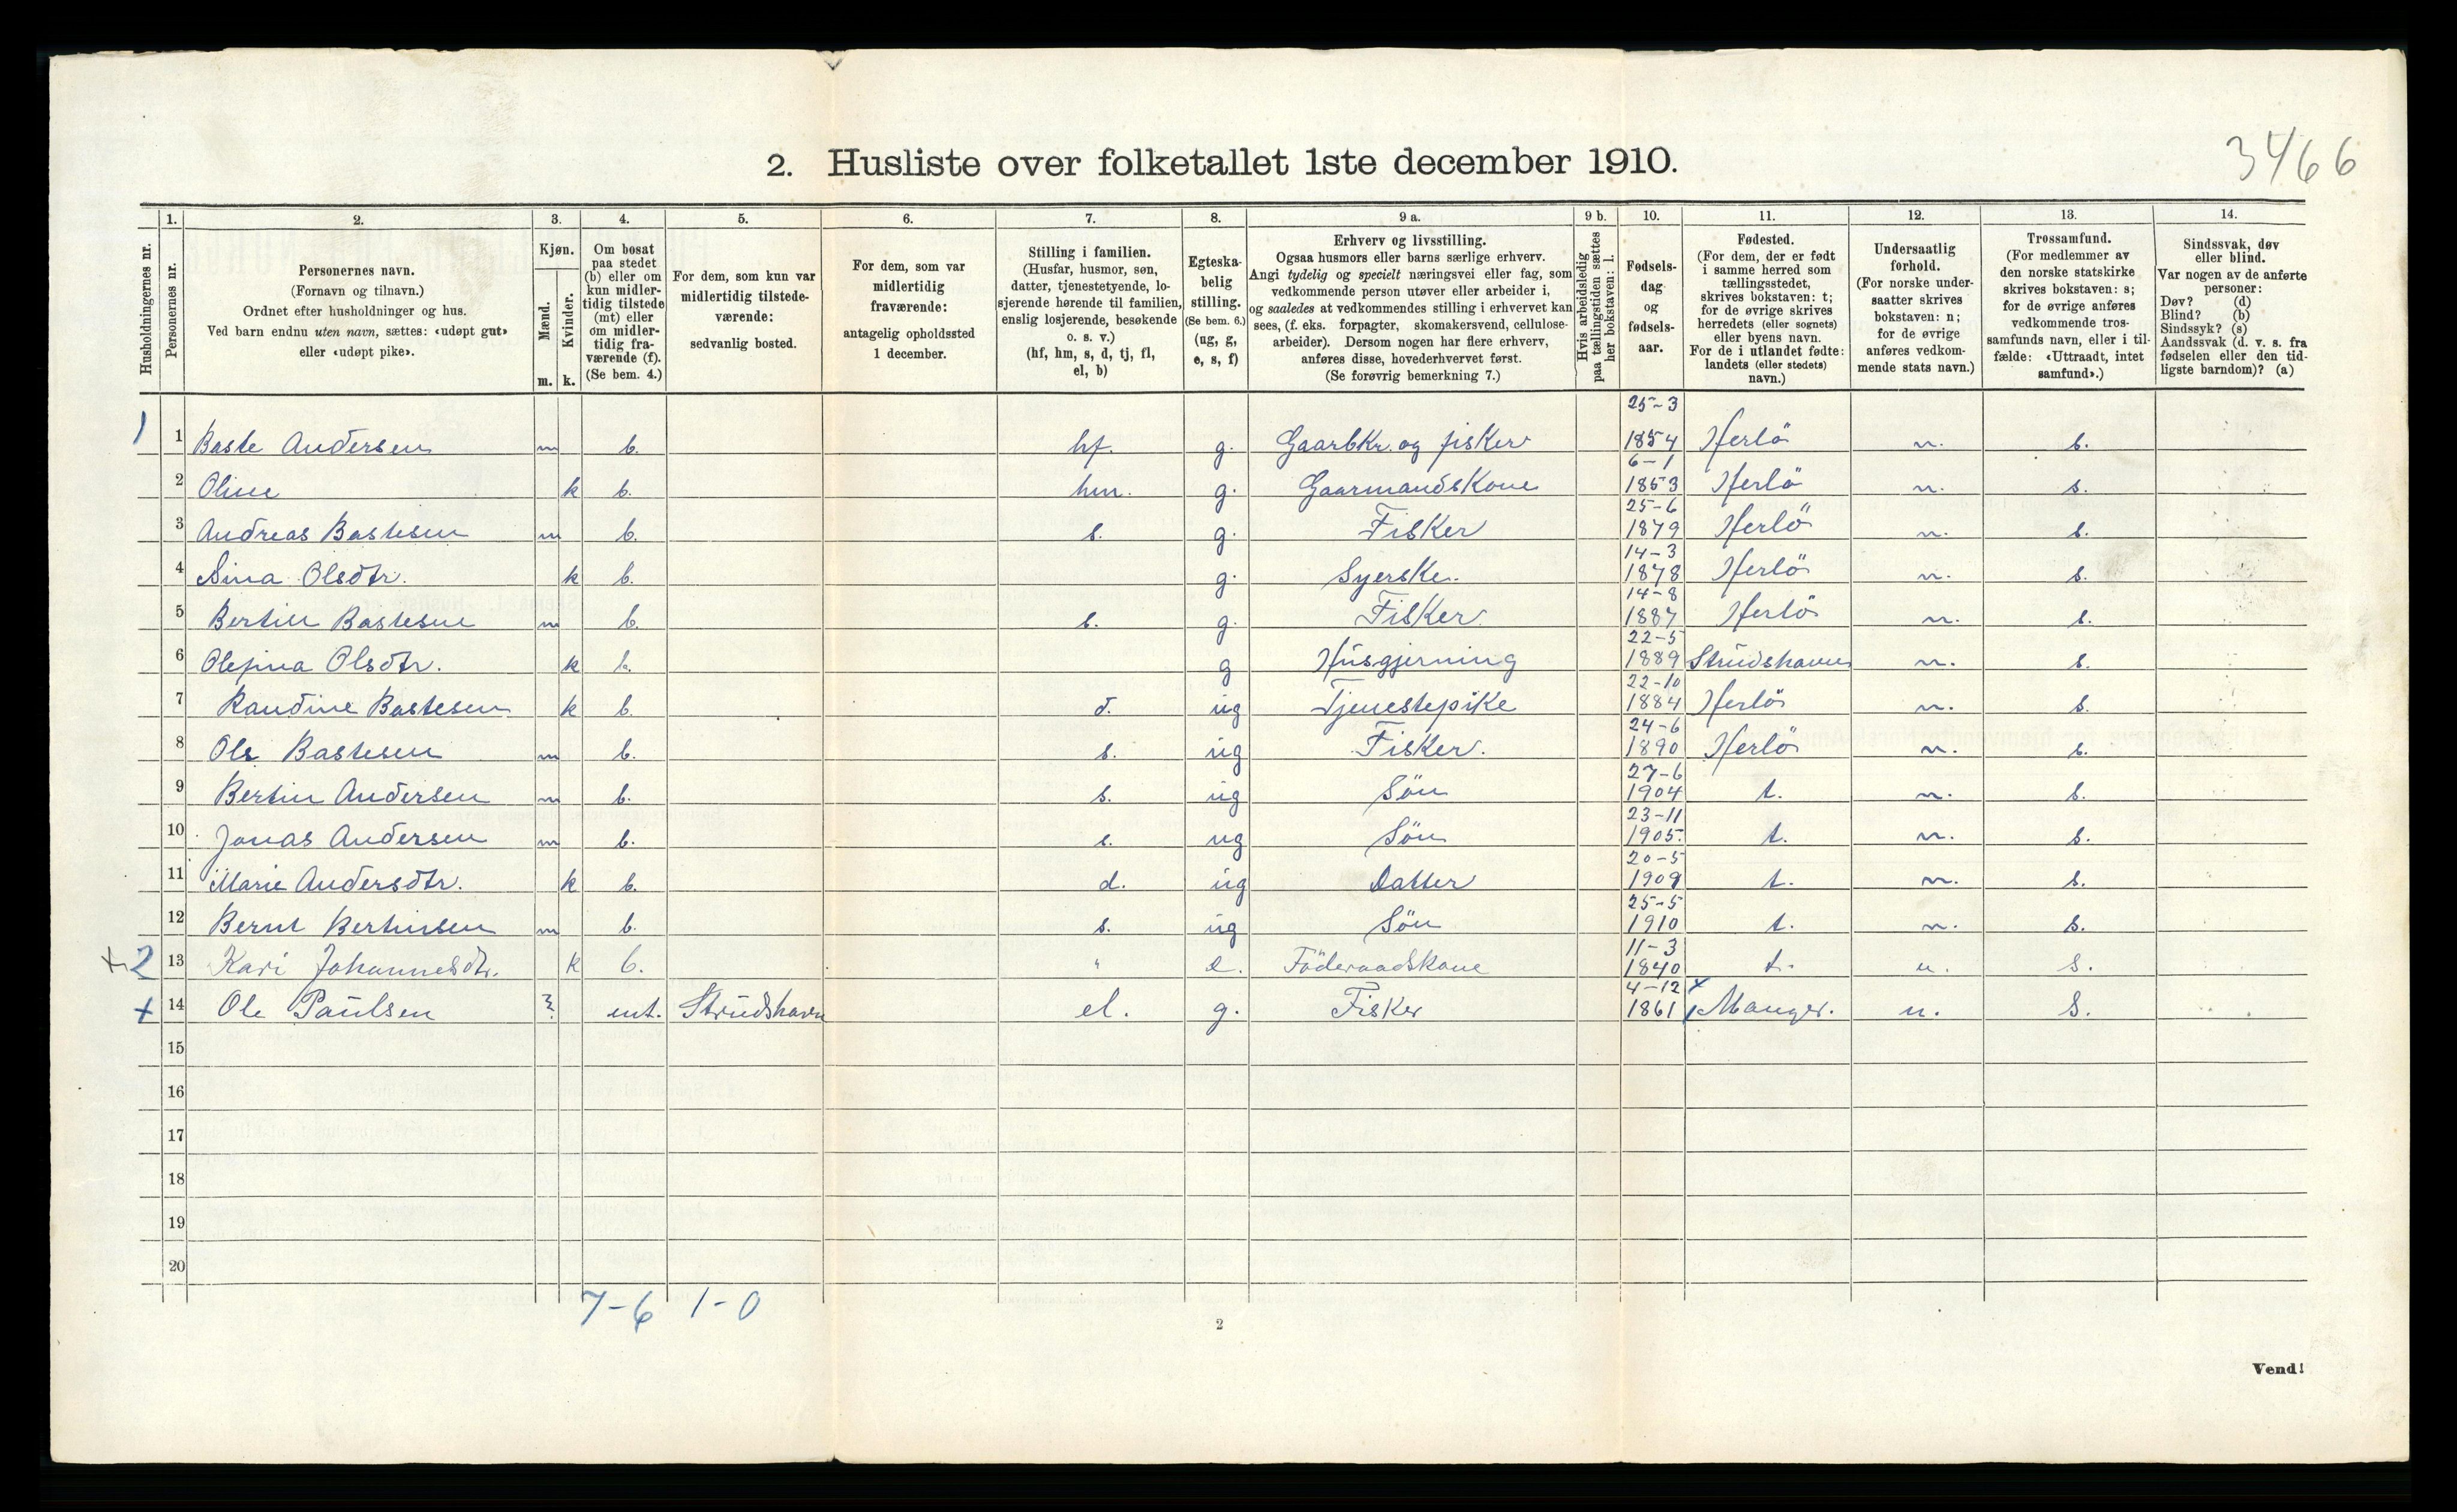 3466
2. Husliste over folketallet 1ste december 1910.
Husholdningernes nr.
1. Personernes nr.
2. Personernes navn.
(Fornavn og tilnavn.)
Ordnet efter husholdninger og hus.
Ved barn endnu uten navn, sættes: «udøpt gut»
eller «udøpt pike».
3. Kjøn.
Mænd. m.
Kvinder. k.
4. Om bosat
paa stedet
(b) eller om
kun midler-
tidig tilstede
(mt) eller
om midler-
tidig fra-
værende (f).
(Se bem. 4.)
5. For dem, som kun var
midlertidig tilstede-
værende:
sedvanlig bosted.
6. For dem, som var
midlertidig
fraværende:
antagelig opholdssted
1 december.
7. Stilling i familien.
(Husfar, husmor, søn,
datter, tjenestetyende, lo-
sjerende hørende til familien,
enslig losjerende, besøkende
o. s. v.)
(hf, hm, s, d, tj, fl,
el, b)
8. Egteska-
belig
stilling.
(Se bem. 6.)
(ug, g,
e, s, f)
9 a. Erhverv og livsstilling.
Ogsaa husmors eller barns særlige erhverv.
Angi tydelig og specielt næringsvei eller fag, som
vedkommende person utøver eller arbeider i,
og saaledes at vedkommendes stilling i erhvervet kan
sees, (f. eks. forpagter, skomakersvend, cellulose-
arbeider). Dersom nogen har flere erhverv,
anføres disse, hovederhvervet først.
(Se forøvrig bemerkning 7.)
9 b. Hvis arbeidsledig
paa tællingstiden sættes
her bokstaven: l.
10. Fødsels-
dag
og
fødsels-
aar.
11. Fødested.
(For dem, der er født
i samme herred som
tællingsstedet,
skrives bokstaven: t;
for de øvrige skrives
herredets (eller sognets)
eller byens navn.
For de i utlandet fødte:
landets (eller stedets)
navn.)
12. Undersaatlig
forhold.
(For norske under-
saatter skrives
bokstaven: n;
for de øvrige
anføres vedkom-
mende stats navn.)
13. Trossamfund.
(For medlemmer av
den norske statskirke
skrives bokstaven: s;
for de øvrige anføres
vedkommende tros-
samfunds navn, eller i til-
fælde: «Uttraadt, intet
samfund».)
14. Sindssvak, døv
eller blind.
Var nogen av de anførte
personer:
Døv? (d)
Blind? (b)
Sindssyk? (s)
Aandssvak (d. v. s. fra
fødselen eller den tid-
ligste barndom)? (a)
1 1 Baste Andersen m b. hf. g. Gaarbkr. og fisker 25-3 1854 Herlö n. s.
2 Oline k b. hm. g. Gaarmandskone 6-1 1853 Herlö n. s.
3 Andreas Bastesen m b. s. g. Fisker 25-6 1879 Herlö n. s.
4 Sina Olsdtr. k b. g. Syerske. 14-3 1878 Herlö n. s.
5 Bertin Bastesen m b. s. g. Fisker 14-8 1887 Herlö n. s.
6 Olefina Olsdtr. k b. g Husgjerning 22-5 1889 Strudshavn n. s.
7 Randine Bastesen k b. d. ug Tjenestepike 22-10 1884 Herlö n. s.
8 Ole Bastesen m b. s. ug Fisker. 24-6 1890 Herlö n. s.
9 Bertin Andersen m b. s. ug Sön 27-6 1904 t. n. s.
10 Jonas Andersen m b. s. ug Sön 23-11 1905. t. n. s.
11 Marie Andersdtr. k b. d. ug Datter 20-5 1909 t. n. s.
12 Bernt Bertinsen m b. s. ug Sön 25-5 1910 t. n. s.
x 2 13 Kari Johannesdtr. k b. " e. Föderaadskone 11-3 1840 t. n. s.
x 14 Ole Paulsen m mt. Strudshavn el. g. Fisker 4-12 1861 x Manger. n. s.
15
16
17
18
19
20
7-6 1-0
2
Vend!